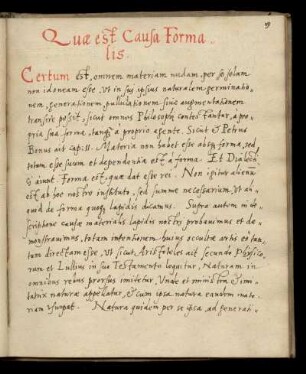 9
Quæ est Causa Forma
lis.
Certum est, omnem materiam nudam, per se solam
non idoneam esse, ut in suj ipsius naturalem germinatio,
nem, generationem, pullulationem sive augmentationem
transire possit, sicut omnes Philosophi contestantur, a pro,
pria sua forma, tanq̃ a proprio agente. Sicut et Petrus
Bonus ait cap: Materia non habet esse absq̃ forma, sed
totum esse suum et dependentia est a forma. Et Dialecti
aiunt Forma est, quæ dat esse rei. Non igitur alienum
est ab hoc nostro instituto, sed summe necessarium, ut ali,
quid de forma quoq̃ lapidis dicamus. Supra autem in de,
scriptione causæ materialis lapidis nostri probavimus et de,
monstravimus, totam intentionem huius occultæ artis eo tan,
tum directam esse, ut sicut Aristoteles ait secundo Physico,
rum et Lullius in suo Testamento loquitur, Naturam in
omnibus rebus prorsus imitetur, Unde et ministra et imi,
tatrix naturæ appellatur, et cum ipsa natura eandem mate,
riam usurpat. Natura quidem per se ipsa ad generati,